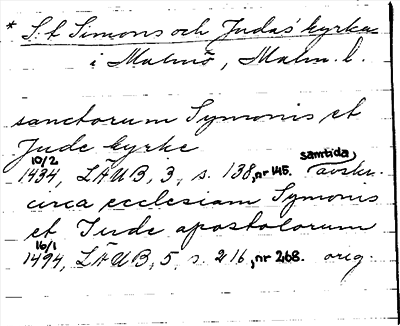 * S:t Simons och Judas' kyrka
i Malmö, Malm. l.
sanctorum Symonis et
Jude kyrke
10/2 samtida
1434, LÄUB, 3, s. 138, nr 145. avskr.
circa ecclesiam Symonis
et Jude apostolorum
16/1
1494, LÄUB, 5, s. 216, nr 268. orig.